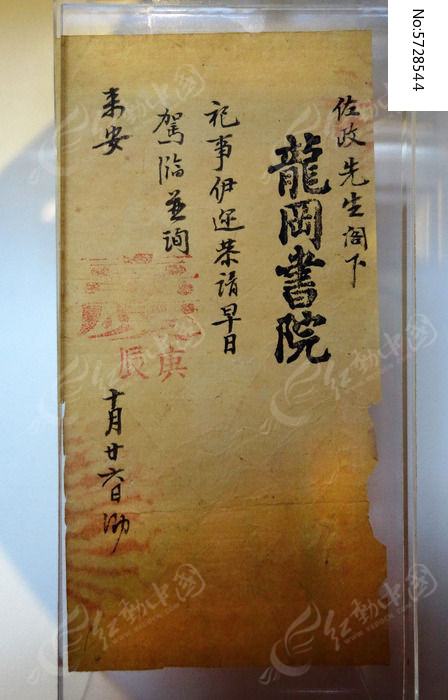 No:5728544
佐政先生阁下
龍岡書院
祀事伊迩恭請早日
駕臨並詢
来安
庚辰
十月廿六日泐